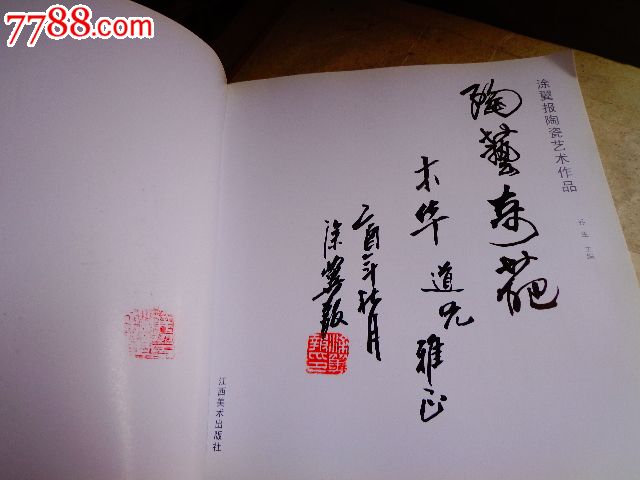 7788.com
涂翼报陶瓷艺术作品
主编
陶藝奇葩
木华
道兄
雅正
乙酉年秋月
涂翼报
江西美术出版社